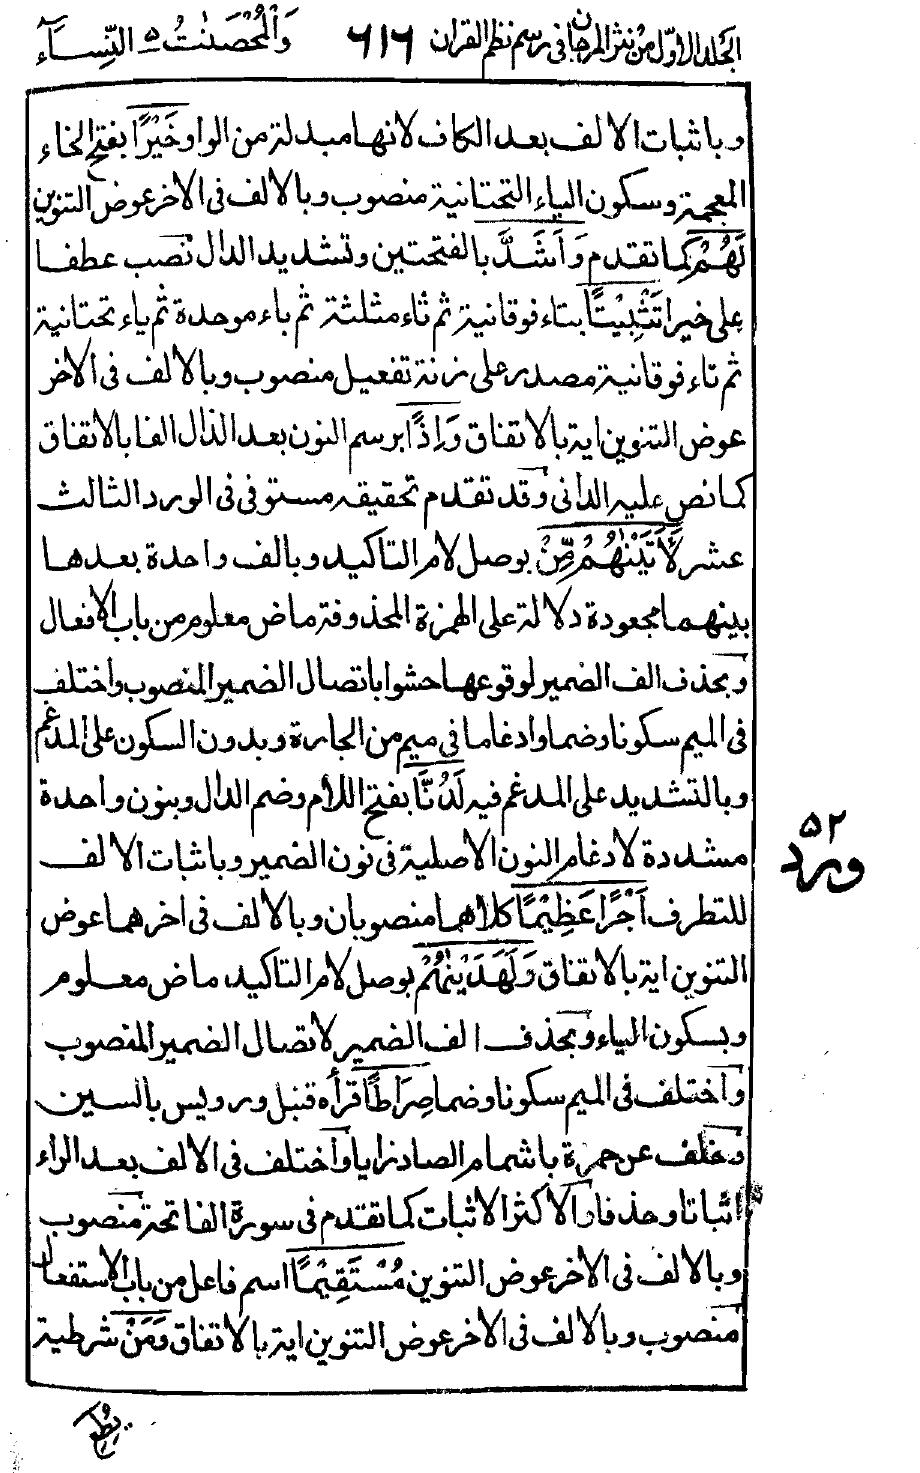 الجلد الاوّل من نثر المرجان فى رسم نظم القران ٦١٦ وَالْمُحْصَنٰتُ ٥ النِّسَآء
وباثبات الالف بعد الكاف لانها مبدلة من الواو خَيْرًا بفتح الخاء
المعجمة وسكون الياء التحتانية منصوب وبالالف فى الاخر عوض التنوين
لَهُمْ كما تقدم وَاَشَدَّ بالفتحتين وتشديد الدال نصب عطفا
على خيرا تَثْبِيْتًا بتاء فوقانية ثم ثاء مثلثة ثم باء موحدة ثم ياء تحتانية
ثم تاء فوقانية مصدر على زنة تفعيل منصوب وبالالف فى الاخر
عوض التنوين اية بالاتفاق وَاِذًا برسم النون بعد الذال الفا بالاتفاق
كما نص عليه الدانى وقد تقدم تحقيقه مستوفى فى الورد الثالث
عشر لَّاٰتَيْنٰهُمْ مِّنْ بوصل لام التاكيد وبالف واحدة بعدها
بينهما مجعودة دلالة على الهمزة المحذوفة ماض معلوم من باب الافعال
وبحذف الف الضمير لوقوعها حشوا باتصال الضمير المنصوب واختلف
فى الميم سكونا وضما وادغاما فى ميم من الجارة وبدون السكون على المدغم
وبالتشديد على المدغم فيه لَدُنَّا بفتح اللام وضم الدال وبنون واحدة
مشددة لادغام النون الاصلية فى نون الضمير وباثبات الالف
للتطرف اَجْرًا عَظِيْمًا كلاهما منصوبان وبالالف فى اخرهما عوض
التنوين اية بالاتفاق وَلَهَدَيْنٰهُمْ بوصل لام التاكيد ماض معلوم
وبسكون الياء وبحذف الف الضمير لاتصال الضمير المنصوب
واختلف فى الميم سكونا وضما صِرَاطًا قرأه قنبل ورويس بالسين
وخلف عن حمزة باشمام الصاد زايا واختلف فى الالف بعد الراء
اثباتا وحذفا والاكثر الاثبات كما تقدم فى سورة الفاتحة منصوب
وبالالف فى الاخر عوض التنوين مُسْتَقِيْمًا اسم فاعل من باب الاستفعال
منصوب وبالالف فى الاخر عوض التنوين اية بالاتفاق وَمَنْ شرطية
٥٢
ورد
يُطِعِ